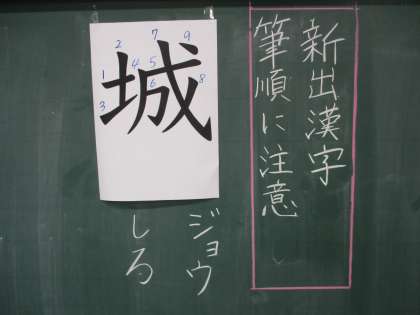 新出漢字
筆順に注意
城
1 2 3 4 5 6 7 8 9
ジョウ
しろ